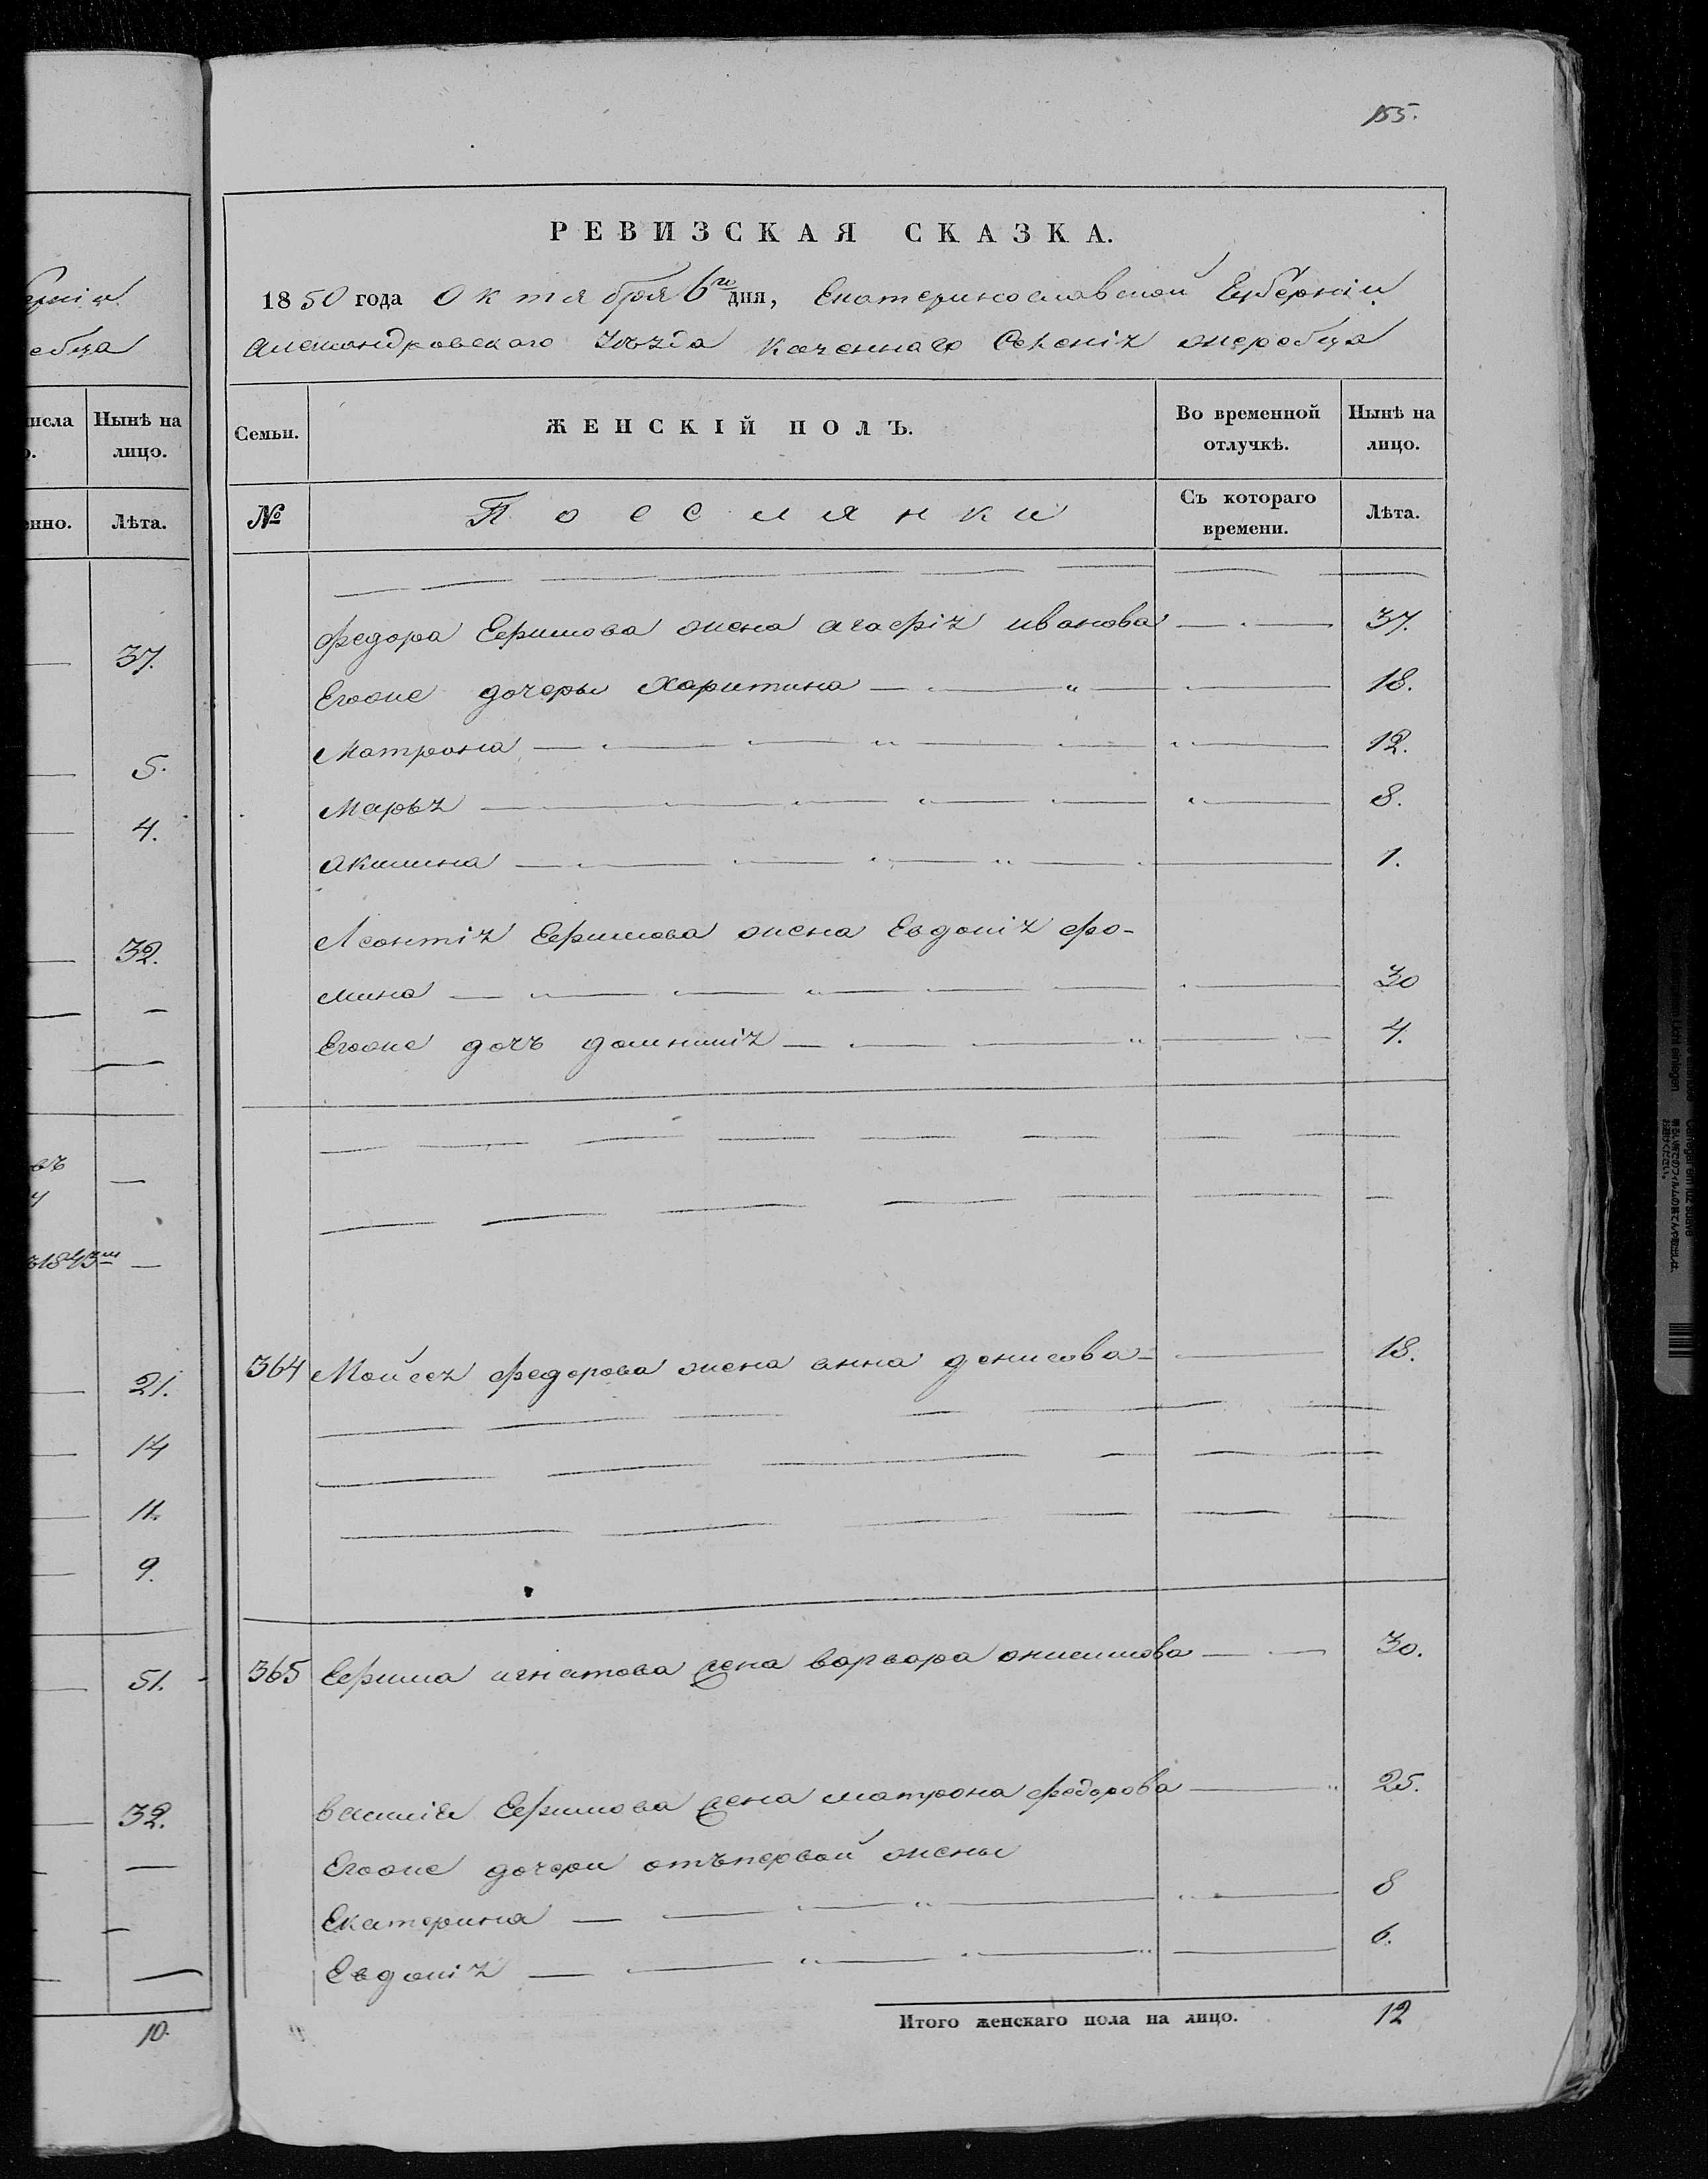 155.
РЕВИЗСКАЯ СКАЗКА.
1850 года Октября 6го дня, Екатеринославской Губерніи
Александровскаго Уѣзда Казеннаго Селенія жеребца
Семьи.
ЖЕНСКІЙ ПОЛЪ.
Во временной отлучкѣ.
Нынѣ на лицо.
№
Поселянки
Съ котораго времени.
Лѣта.
федора Ефимова жена агафія иванова 37.
Егоже дочеры Харитина 18.
Матрона 12.
Марья 8.
акилина 1.
Леонтія Ефимова жена Евдокія фо-
мина 30
Егоже дочъ домникія 4.
364 Мойсея федорова жена анна денисова 18.
365 Ефима игнатова жена варвара онисимова 30.
василія Ефимова жена матрона федорова 25.
Егоже дочери отъ первой жены
Екатерина 8
Евдокія 6.
Итого женскаго пола на лицо. 12
ерніи
ебца
исла
Нынѣ на
лицо.
нно.
Лѣта.
37.
5.
4.
32.
въ
1843
21.
14
11.
9.
51.
32.
10.